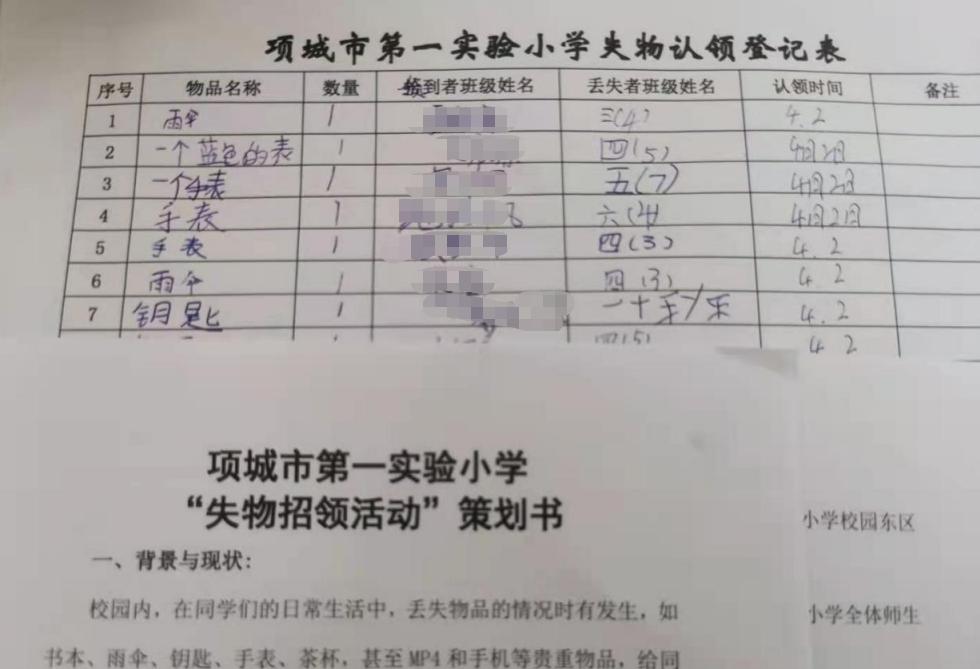 项城市第一实验小学失物认领登记表
序号 物品名称 数量 捡到者班级姓名 丢失者班级姓名 认领时间 备注
1 雨伞 1 三(4) 4.2
2 一个蓝色的表 1 四(5) 4月2日
3 一个手表 1 五(7) 4月2日
4 手表 1 六(4) 4月2日
5 手表 1 四(3) 4.2
6 雨伞 1 四(3) 4.2
7 钥匙 1 4.2
四(5) 4.2
项城市第一实验小学
“失物招领活动”策划书
小学校园东区
一、背景与现状:
校园内，在同学们的日常生活中，丢失物品的情况时有发生，如
小学全体师生
书本、雨伞、钥匙、手表、茶杯，甚至MP4和手机等贵重物品，给同